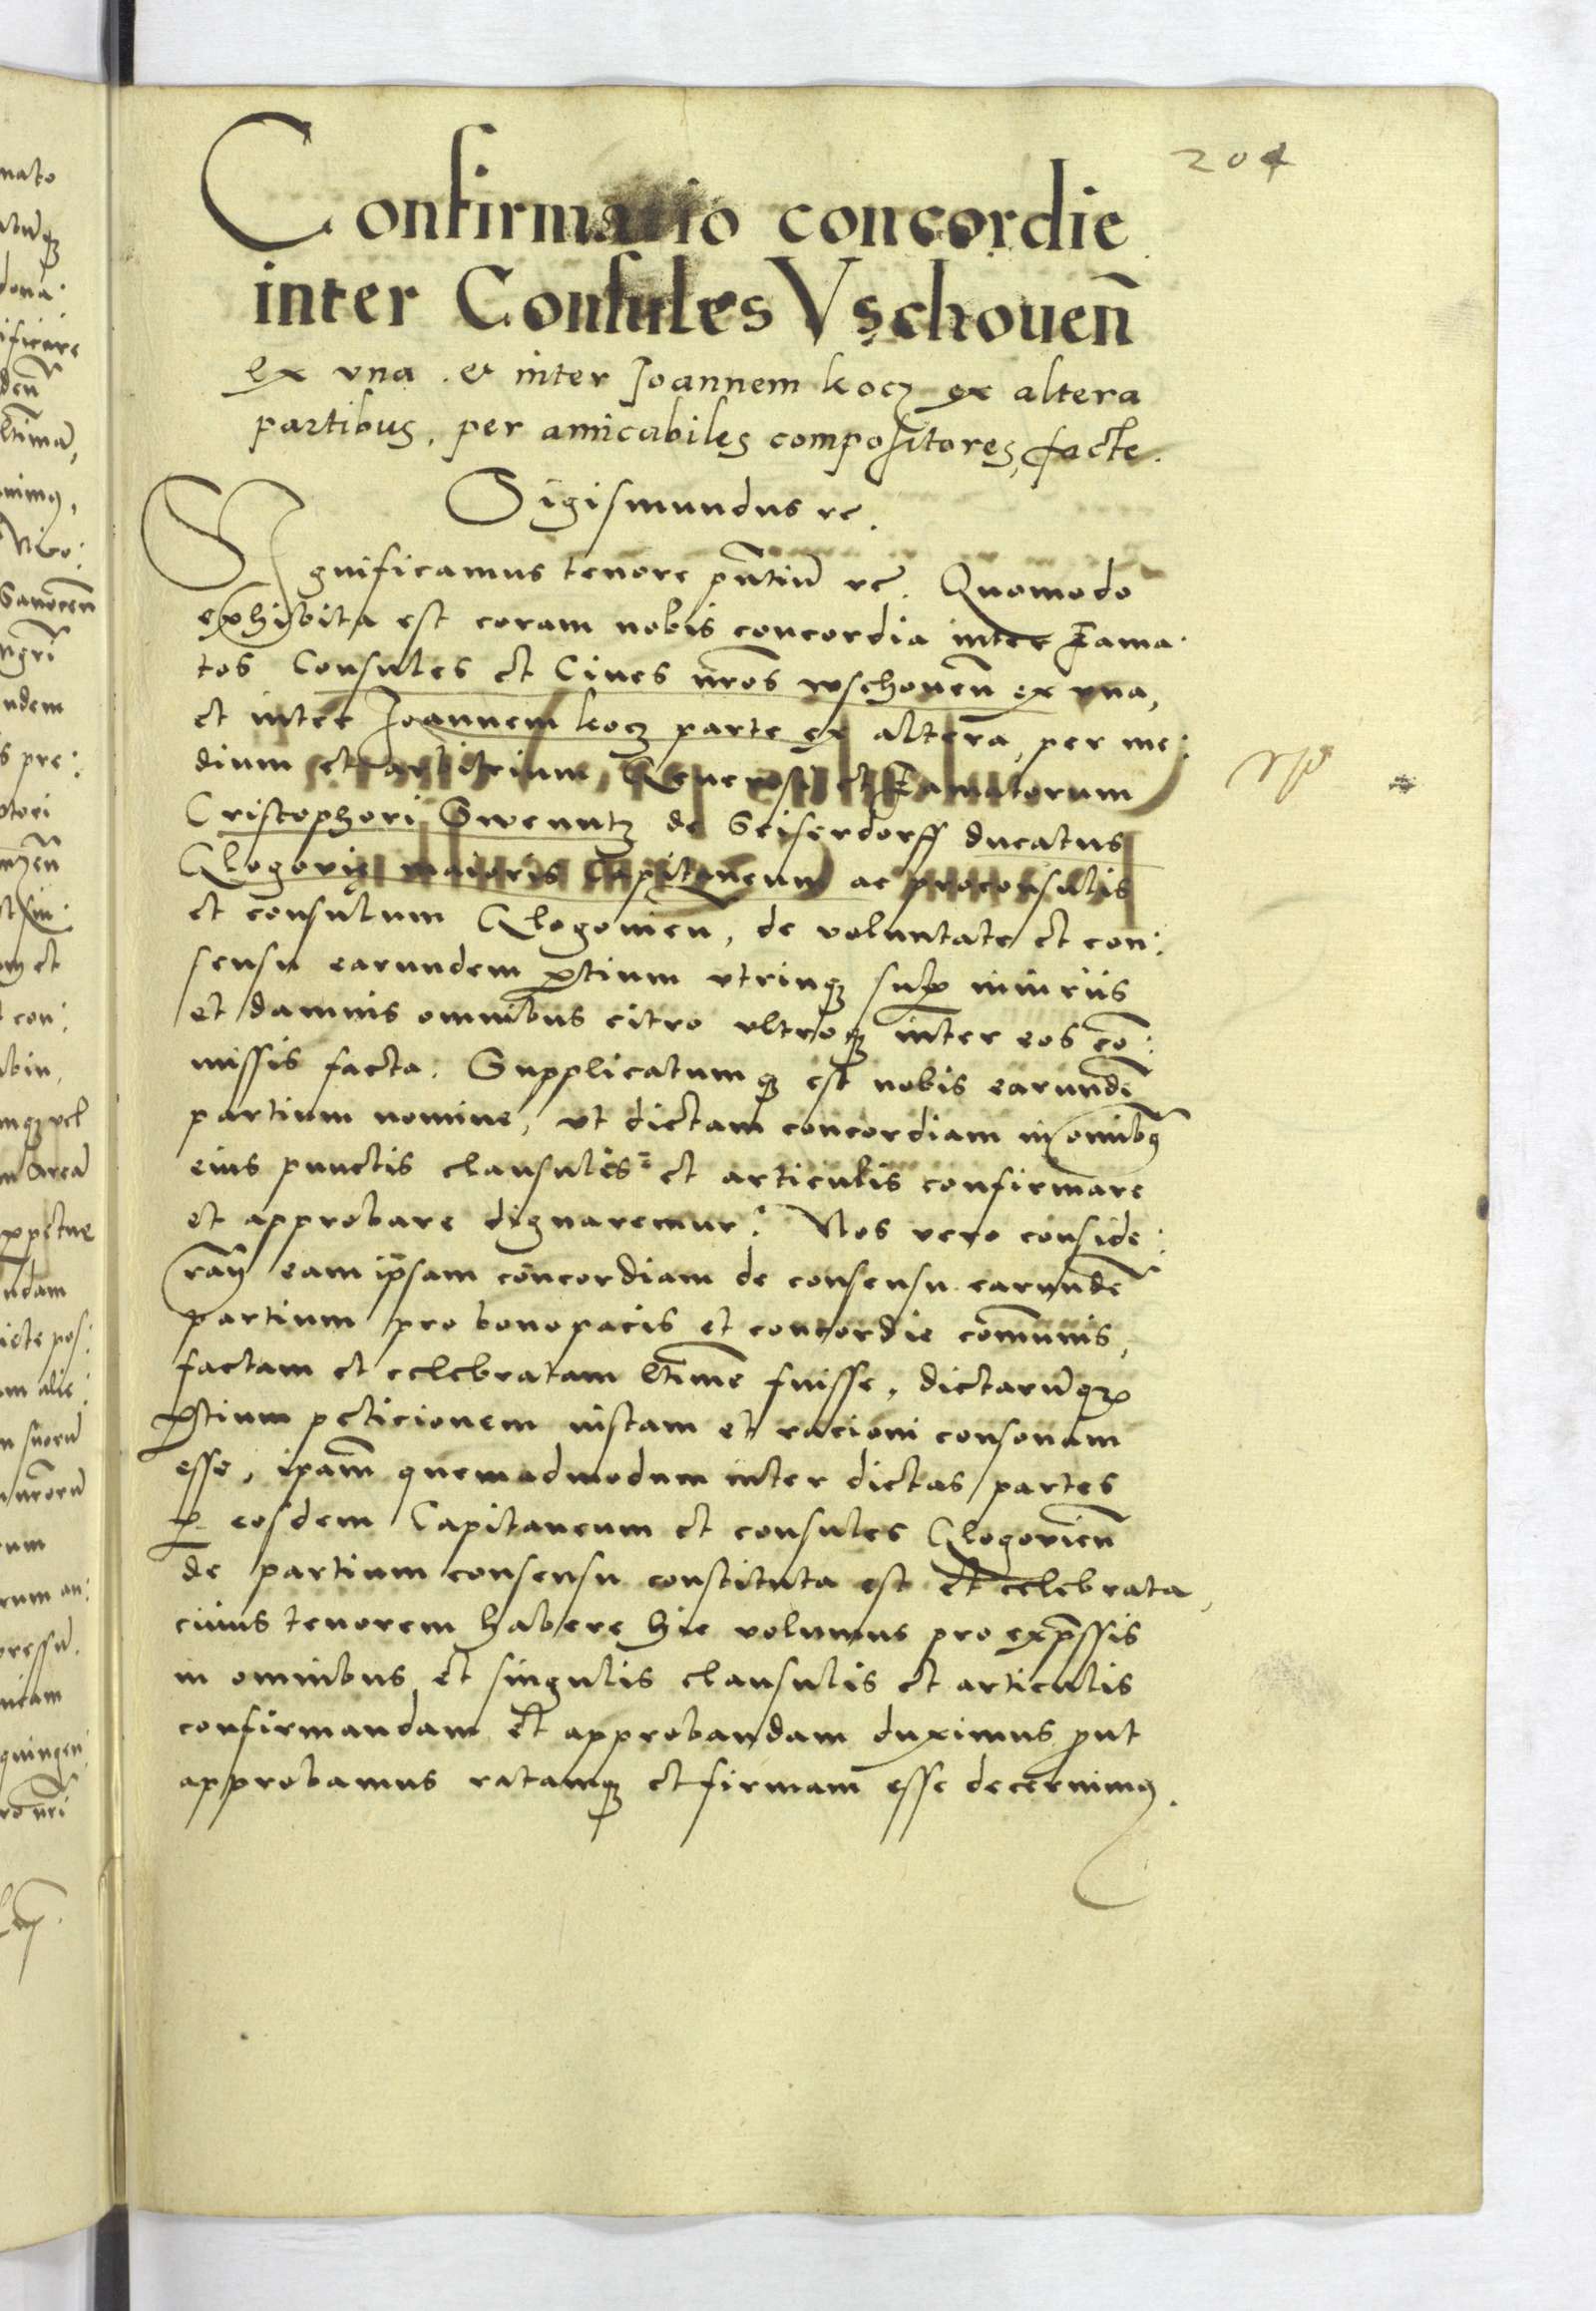 204
Confirmatio concordie
inter Consules Vschoueñ
ex vna . et inter Joannem kocz ex altera
partibus, per amicabiles compositores, facte.
Sigismundus rc.
Significamus tenore pñtiũ rc̃. Quomodo
exhibita est coram nobis concordia inter Fama:
tos Consules et Ciues nr̃os wschoueñ ex vna,
et inter Joannem kocz parte ex altera, per me:
dium et arbitrium, Generosi et Famatorum
Cristophori Swenntz de Seiserdorff ducatus
Glogovie maioris Capitaneum ac proconsulis
et consulum Glogouien, de voluntate et con:
sensu earundem ꝑtium vtrinqꝫ suꝑ iniuriis
et damnis omnibus citro vltroqꝫ inter eos cõ:
missis facta. Supplicatumqꝫ est nobis earundẽ
partium nomine, vt dictam concordiam in omnibꝰ
eius punctis clausulis et articulis confirmare
et approbare dignaremur. Nos vero conside:
rañ eam ip̃sam concordiam de consensu earundẽ
partium pro bono pacis et concordie cõmunis,
factam et celebratam ltĩme fuisse, dictarũqꝫ
ꝑtium peticionem iustam et racioni consonam
esse, ipam̃ quemadmodum inter dictas partes
ꝑ eosdem Capitaneum et consules Glogovieñ
de partium consensu constituta est et celebrata,
cuius tenorem habere hic volumus pro exp̃ssis
in omnibus et singulis clausulis et articulis
confirmandam et approbandam duximus prout
approbamus ratamqꝫ et firmam esse decernimꝰ.